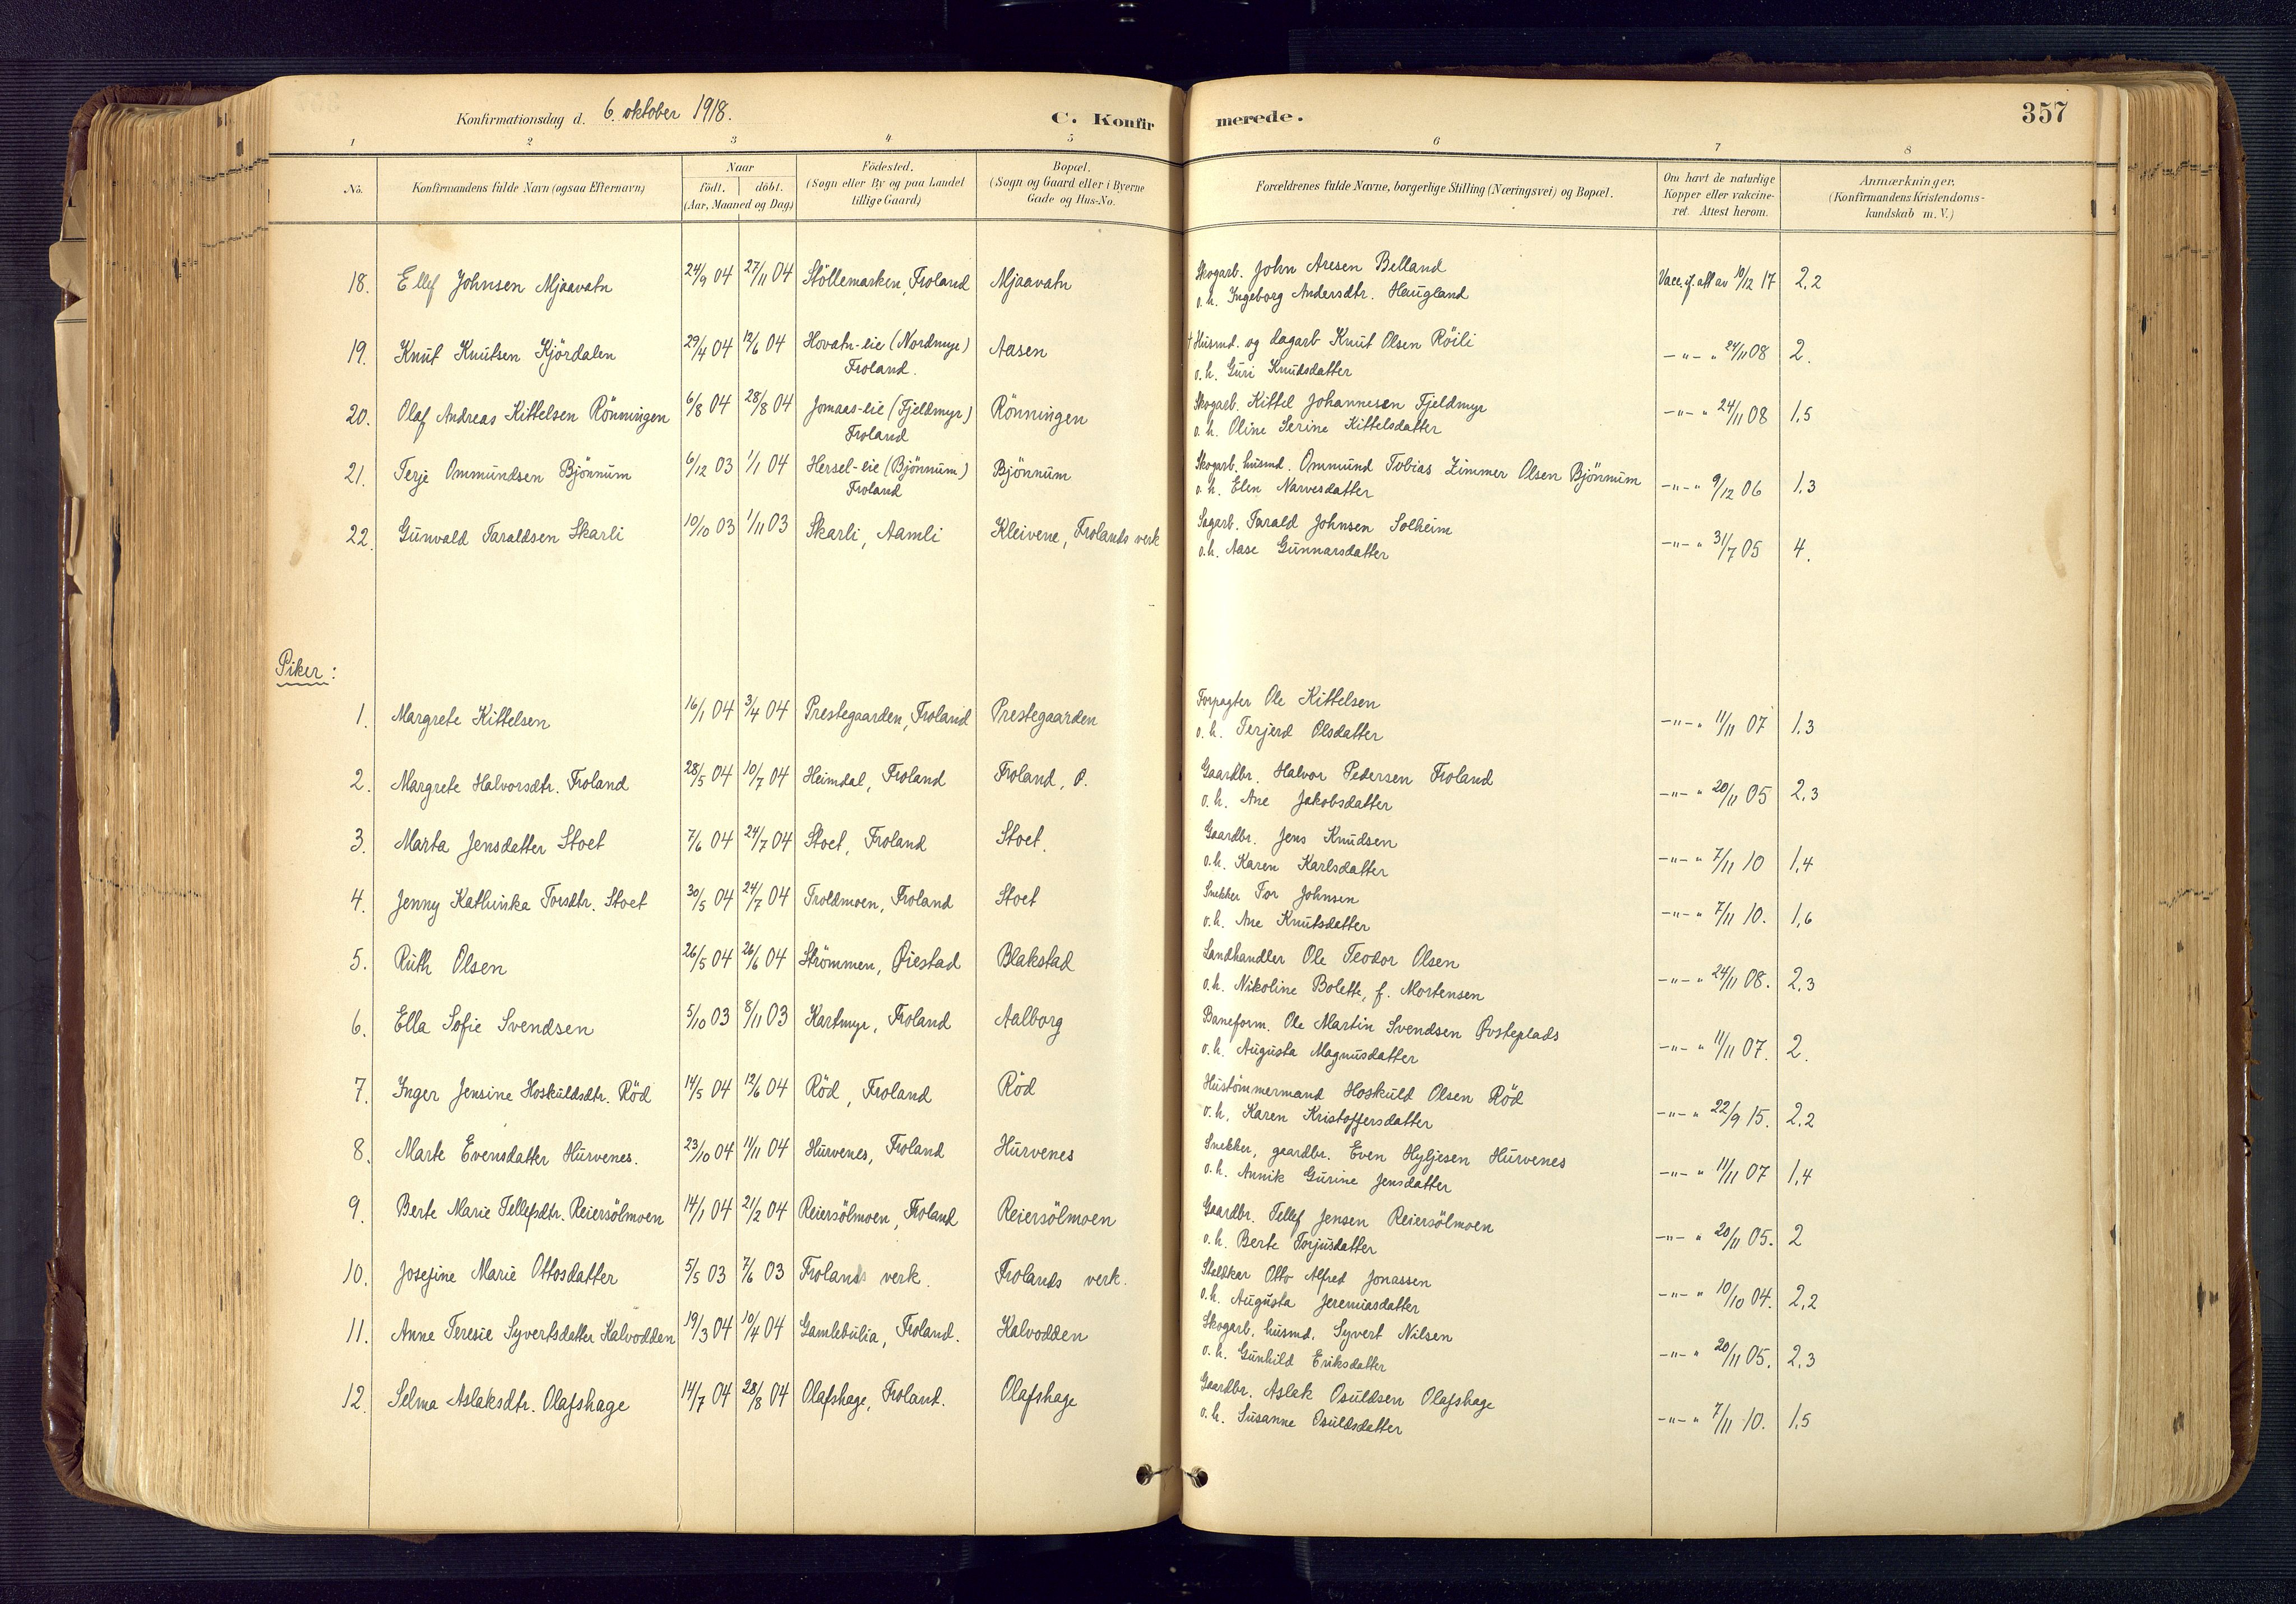 Konfirmationsdag d. 6. oktober 1918. C. Konfirmerede. 357
1 2 3 4 5 6 7 8
No. Konfirmandens fulde Navn (ogsaa Efternavn) Naar født. døbt. (Aar, Maaned og Dag) Födested. (Sogn eller By og paa Landet tillige Gaard) Bopæl. (Sogn og Gaard eller i Byerne Gade og Hus-No. Forældrenes fulde Navne, borgerlige Stilling (Næringsvei) og Bopæl. Om havt de naturlige Kopper eller vakcineret. Attest herom. Anmærkninger. (Konfirmandens Kristendomskundskab m. V.)
18. Ellef Johnsen Mjaavatn 24/9 04 27/11 04 Stöllemarken, Froland Mjaavatn Skogarb. John Aresen Belland Vacc. if. att av 10/12 17 2,2
o. h. Ingeborg Andersdtr. Haugland
19. Knut Knutsen Kjördalen 29/4 04 12/6 04 Hovatn-eie (Nordmyr) Froland. Aasen † Husmd. og dagarb Knut Olsen Röili -"- " 24/11 08 2.
o. h. Guri Knudsdatter
20. Olaf Andreas Kittelsen Rönningen 6/8 04 28/8 04 Jomaas-eie (Fjeldmyr) Froland Rönningen Skogarb. Kittel Johannesen Fjeldmyr -"- " 24/11 08 1,5
o. h. Oline Serine Kittelsdatter
21. Terje Ommundsen Bjönnum 6/12 03 1/1 04 Hersel-eie (Bjönnum) Froland Bjönnum Skogarb. husmd. Ommund Tobias Zimmer Olsen Bjönnum -"- " 9/12 06 1,3
o. h. Elen Narvesdatter
22. Gunvald Taraldsen Skarli 10/10 03 1/11 03 Skarli, Aamli Kleivene, Frolands verk Sagarb. Tarald Johnsen Solheim -"- " 31/7 05 4.
o. h. Aase Gunnarsdatter
Piker:
1. Margrete Kittelsen 16/1 04 3/4 04 Prestegaarden, Froland Prestegaarden Forpagter Ole Kittelsen -"- " 11/11 07 1,3
o. h. Terjerd Olsdatter
2. Margrete Halvorsdtr. Froland 28/5 04 10/7 04 Heimdal, Froland Froland, Ö. Gaardbr. Halvor Pedersen Froland -"- " 20/11 05 2,3
o. h. Ane Jakobsdatter
3. Marta Jensdatter Stoet 7/6 04 24/7 04 Stoet, Froland Stoet. Gaardbr. Jens Knudsen -"- " 7/11 10 1,4
o. h. Karen Karlsdatter
4. Jenny Kathinka Torsdtr. Stoet 30/5 04 24/7 04 Troldmoen, Froland Stoet Snekker Tor Johnsen -"- " 7/11 10. 1,6
o. h. Ane Knutsdatter
5. Ruth Olsen 26/5 04 26/6 04 Strömmen, Øiestad Blakstad Landhandler Ole Teodor Olsen -"- " 24/11 08. 2,3
o. h. Nikoline Bolette, f. Mortensen
6. Ella Sofie Svendsen 5/10 03 8/11 03 Kartmyr, Froland Aalborg Baneform. Ole Martin Svendsen Øvsteplads -"- " 11/11 07. 2.
o. h. Augusta Magnusdatter
7. Inger Jensine Hoskuldsdtr. Röd 14/5 04 12/6 04 Röd, Froland Röd Hustömmermand Hoskuld Olsen Röd -"- " 22/9 15. 2,2
o. h. Karen Kristoffersdatter
8. Marte Evensdatter Hurvenes. 23/10 04 11/11 04 Hurvenes, Froland Hurvenes Snekker, gaardbr. Even Hyljesen Hurvenes -"- " 11/11 07 1,4
o. h. Annik Gurine Jensdatter
9. Berte Marie Tellefsdtr. Reiersölmoen 14/1 04 21/2 04 Reiersölmoen, Froland Reiersölmoen Gaardbr. Tellef Jensen Reiersölmoen -"- " 20/11 05. 2
o. h. Berte Torjusdatter
10. Josefine Marie Ottosdatter 5/5 03 7/6 03 Frolands verk. Frolands verk. Staldkar Otto Alfred Jonassen -"- " 10/10 04. 2,2
o. h. Augusta Jeremiasdatter
11. Anne Teresie Syvertsdatter Kalvodden 19/3 04 10/4 04 Gamlebulia, Froland. Kalvodden Skogarb. husmd. Syvert Nilsen -"- " 20/11 05. 2,3
o. h. Gunhild Eriksdatter
12. Selma Aslaksdtr. Olafshage 14/7 04 28/8 04 Olafshage, Froland. Olafshage Gaardbr. Aslak Osuldsen Olafshage -"- " 7/11 10. 1,5
o. h. Susanne Osuldsdatter